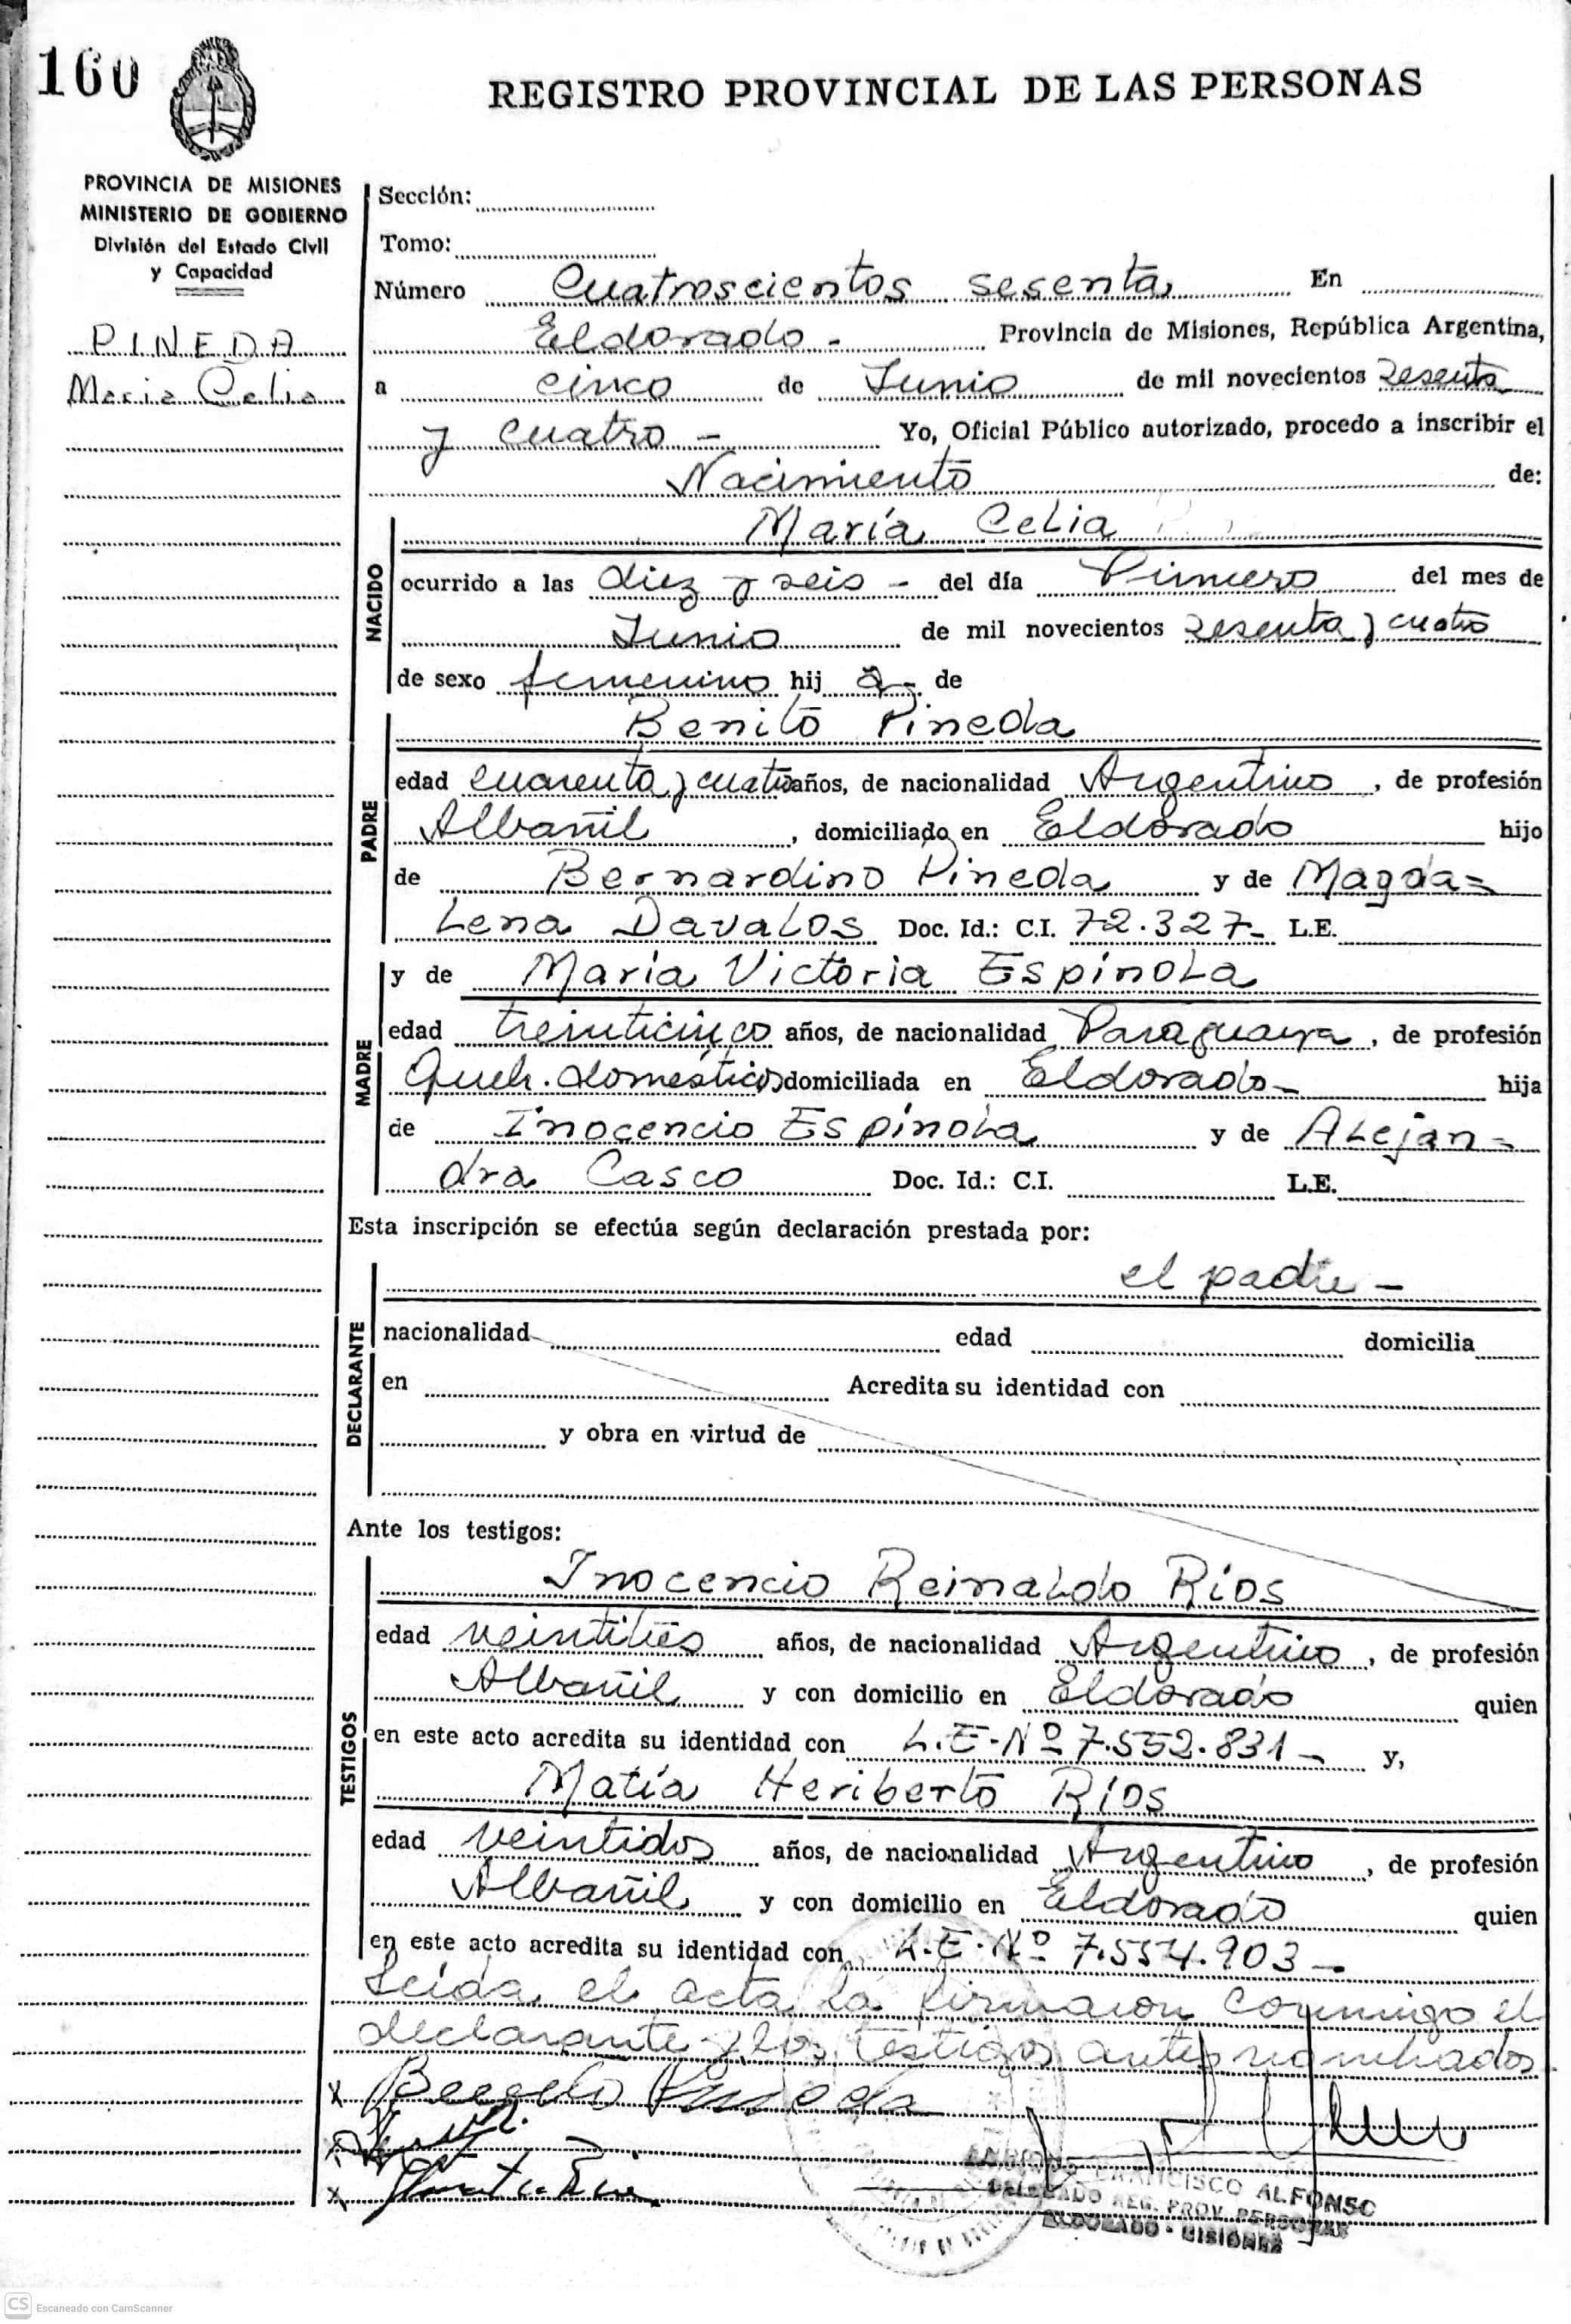 160
REGISTRO PROVINCIAL DE LAS PERSONAS
PROVINCIA DE MISIONES
MINISTERIO DE GOBIERNO
División del Estado Civil
y Capacidad
PINEDA
Maria Celia
Sección:
Tomo:
Número Cuatroscientos sesenta En
Eldorado - Provincia de Misiones, República Argentina,
a cinco de Junio de mil novecientos sesenta
y cuatro - Yo, Oficial Público autorizado, procedo a inscribir el
Nacimiento de:
NACIDO
María Celia
ocurrido a las diez y seis - del día Primero del mes de
Junio de mil novecientos sesenta y cuatro
de sexo femenino hij a - de
PADRE
Benito Pineda
edad cuarenta y cuatro años, de nacionalidad Argentino, de profesión
Albañil, domiciliado en Eldorado hijo
de Bernardino Pineda y de Magda=
Lena Davalos Doc. Id.: C.I. 72.327- L.E.
MADRE
y de María Victoria Espínola
edad treinticinco años, de nacionalidad Paraguaya, de profesión
Queh. domésticos domiciliada en Eldorado - hija
de Inocencio Espínola y de Alejan=
dra Casco Doc. Id.: C.I. L.E.
Esta inscripción se efectúa según declaración prestada por:
DECLARANTE
el padre -
nacionalidad edad domicilia
en Acredita su identidad con
y obra en virtud de
Ante los testigos:
TESTIGOS
Inocencio Reinaldo Ríos
edad veintitres años, de nacionalidad Argentino, de profesión
Albañil y con domicilio en Eldorado quien
en este acto acredita su identidad con L.E. Nº 7.552.831 - y,
Matía Heriberto Ríos
edad veintidos años, de nacionalidad Argentino, de profesión
Albañil y con domicilio en Eldorado quien
en este acto acredita su identidad con L.E. Nº 7.554.903 -
Leída el acta la firmaron conmigo el
declarante y los testigos antes nombrados
x Benito Pineda
x
x
FRANCISCO ALFONSO
DELEGADO REG. PROV. PERSONAS
ELDORADO - MISIONES
CS Escaneado con CamScanner